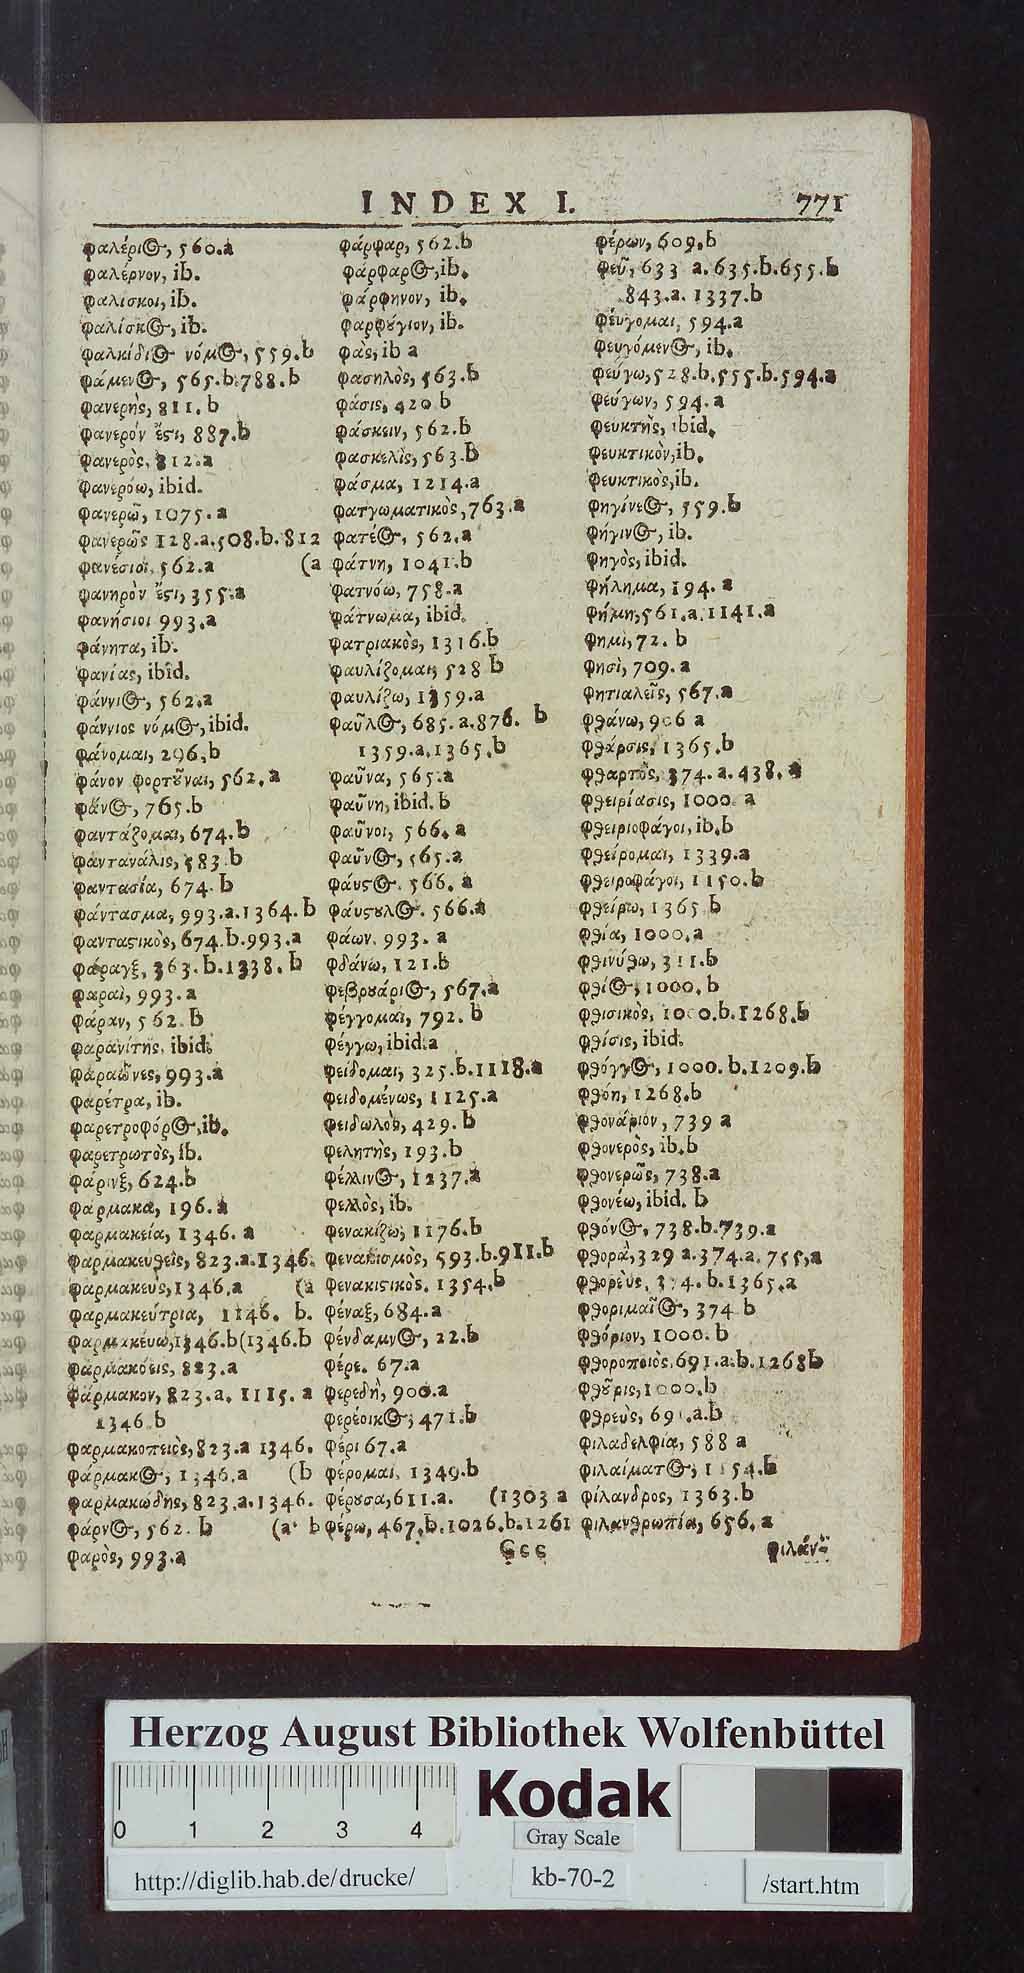 INDEX I. 771
φαλέριος, 560.a
φαλέρνον, ib.
φαλίσκοι, ib.
φαλίσκος, ib.
φαλκίδιος νόμος, 559.b
φάμενος, 565.b.788.b
φανερὴς, 811.b
φανερόν ἔστι, 887.b
φανερὸς, 812.a
φανερόω, ibid.
φανερῶ, 1075.a
φανερῶς 128.a.508.b.812
φανέσιοι, 562.a (a
φανηρὸν ἔστι, 355.a
φανήσιοι 993.a
φάνητα, ib.
φανίας, ibid.
φάννιος, 562.a
φάννιος νόμος, ibid.
φάνομαι, 296.b
φάνον φορτοῦναι, 562.a
φάνος, 765.b
φαντάζομαι, 674.b
φαντανάλις, 583.b
φαντασία, 674.b
φάντασμα, 993.a.1364.b
φανταστικὸς, 674.b.993.a
φάραγξ, 363.b.1338.b
φαραὶ, 993.a
φάραν, 562.b
φαρανίτης, ibid.
φαραῶνες, 993.a
φαρέτρα, ib.
φαρετροφόρος, ib.
φαρετρωτὸς, ib.
φάρινξ, 624.b
φάρμακα, 196.a
φαρμακεία, 1346.a
φαρμακευθεὶς, 823.a.1346.
φαρμακεὺς, 1346.a (a
φαρμακεύτρια, 1146. b.
φαρμακεύω, 1346.b (1346.b
φαρμακόεις, 823.a
φάρμακον, 823.a. 1115. a
1346.b
φαρμακοπειὸς, 823.a 1346.
φάρμακος, 1346.a (b
φαρμακώδης, 823.a.1346.
φάρνος, 562. b (a b
φαρὸς, 993.a
φάρφαρ, 562.b
φάρφαρος, ib.
φάρφηνον, ib.
φαρφούγιον, ib.
φὰς, ib a
φασηλὸς, 563.b
φάσις, 420 b
φάσκειν, 562.b
φασκελὶς, 563.b
φάσμα, 1214.a
φατγωματικὸς, 763.a
φατέος, 562.a
φάτνη, 1041.b
φατνόω, 758.a
φάτνωμα, ibid.
φατριακὸς, 1316.b
φαυλίζομαι, 528 b
φαυλίζω, 1359.a
φαῦλος, 685.a.876. b
1359.a.1365.b
φαῦνα, 565.a
φαῦνη, ibid. b
φαῦνοι, 566.a
φαῦνος, 565.a
φάυστος. 566.a
φάυστουλος. 566.a
φάων. 993. a
φδάνω, 121.b
φεβρουάριος, 567.a
φέγγομαι, 792. b
φέγγω, ibid.a
φείδομαι, 325.b.1118.a
φειδομένως, 1125.a
φειδωλὸς, 429. b
φελητὴς, 193.b
φέλλινος, 1237.a
φελλὸς, ib.
φενακίζω, 1176.b
φενακισμὸς, 593.b.911.b
φενακιστικὸς. 1354.b
φέναξ, 684.a
φένδαμνος, 22.b
φέρε. 67.a
φερεδὴ, 900.a
φερέοικος, 471.b
φέρι 67.a
φέρομαι, 1349.b
φέρουσα, 611.a. (1303 a
φέρω, 467.b.1026.b.1261
φέρων, 609.b
φεῦ, 633 a.635.b.655.b
843.a. 1337.b
φεύγομαι, 594.a
φευγόμενος, ib.
φεύγω, 528.b.555.b.594.a
φεύγων, 594.a
φευκτὴς, ibid.
φευκτικὸν, ib.
φευκτικὸς, ib.
φηγίνεος, 559.b
φήγινος, ib.
φηγὸς, ibid.
φήλημα, 194.a
φήμη, 561.a.1141.a
φημὶ, 72.b
φησὶ, 709.a
φητιαλεῖς, 567.a
φθάνω, 906 a
φθάρσις, 1365.b
φθαρτὸς, 374.a.438. a
φθειρίασις, 1000. a
φθειριοφάγοι, ib.b
φθείρομαι, 1339.a
φθειροφάγοι, 1150.b
φθείρω, 1365.b
φθία, 1000.a
φθινύθω, 311.b
φθίος, 1000.b
φθισικὸς, 1000.b.1268.b
φθίσις, ibid.
φθόγγος, 1000.b.1209.b
φθόη, 1268.b
φθονάριον, 739 a
φθονερὸς, ib.b
φθονερῶς, 738.a
φθονέω, ibid. b
φθόνος, 738.b.739.a
φθορὰ, 329 a.374.a. 755,a
φθορεὺς, 374.b.1365.a
φθοριμαῖος, 374 b
φθόριον, 1000. b
φθοροποιὸς, 691.a.b.1268b
φθοῦρις, 1000.b
φθρεὺς, .a.b
φιλαδελφία, 588 a
φιλαίματος, b
φίλανδρος, 1363.b
φιλανθρωπία, 656.a
Ccc φιλάν-
Herzog August Bibliothek Wolfenbüttel
0 1 2 3 4
Kodak
Gray Scale
http://diglib.hab.de/drucke/ kb-70-2 /start.htm